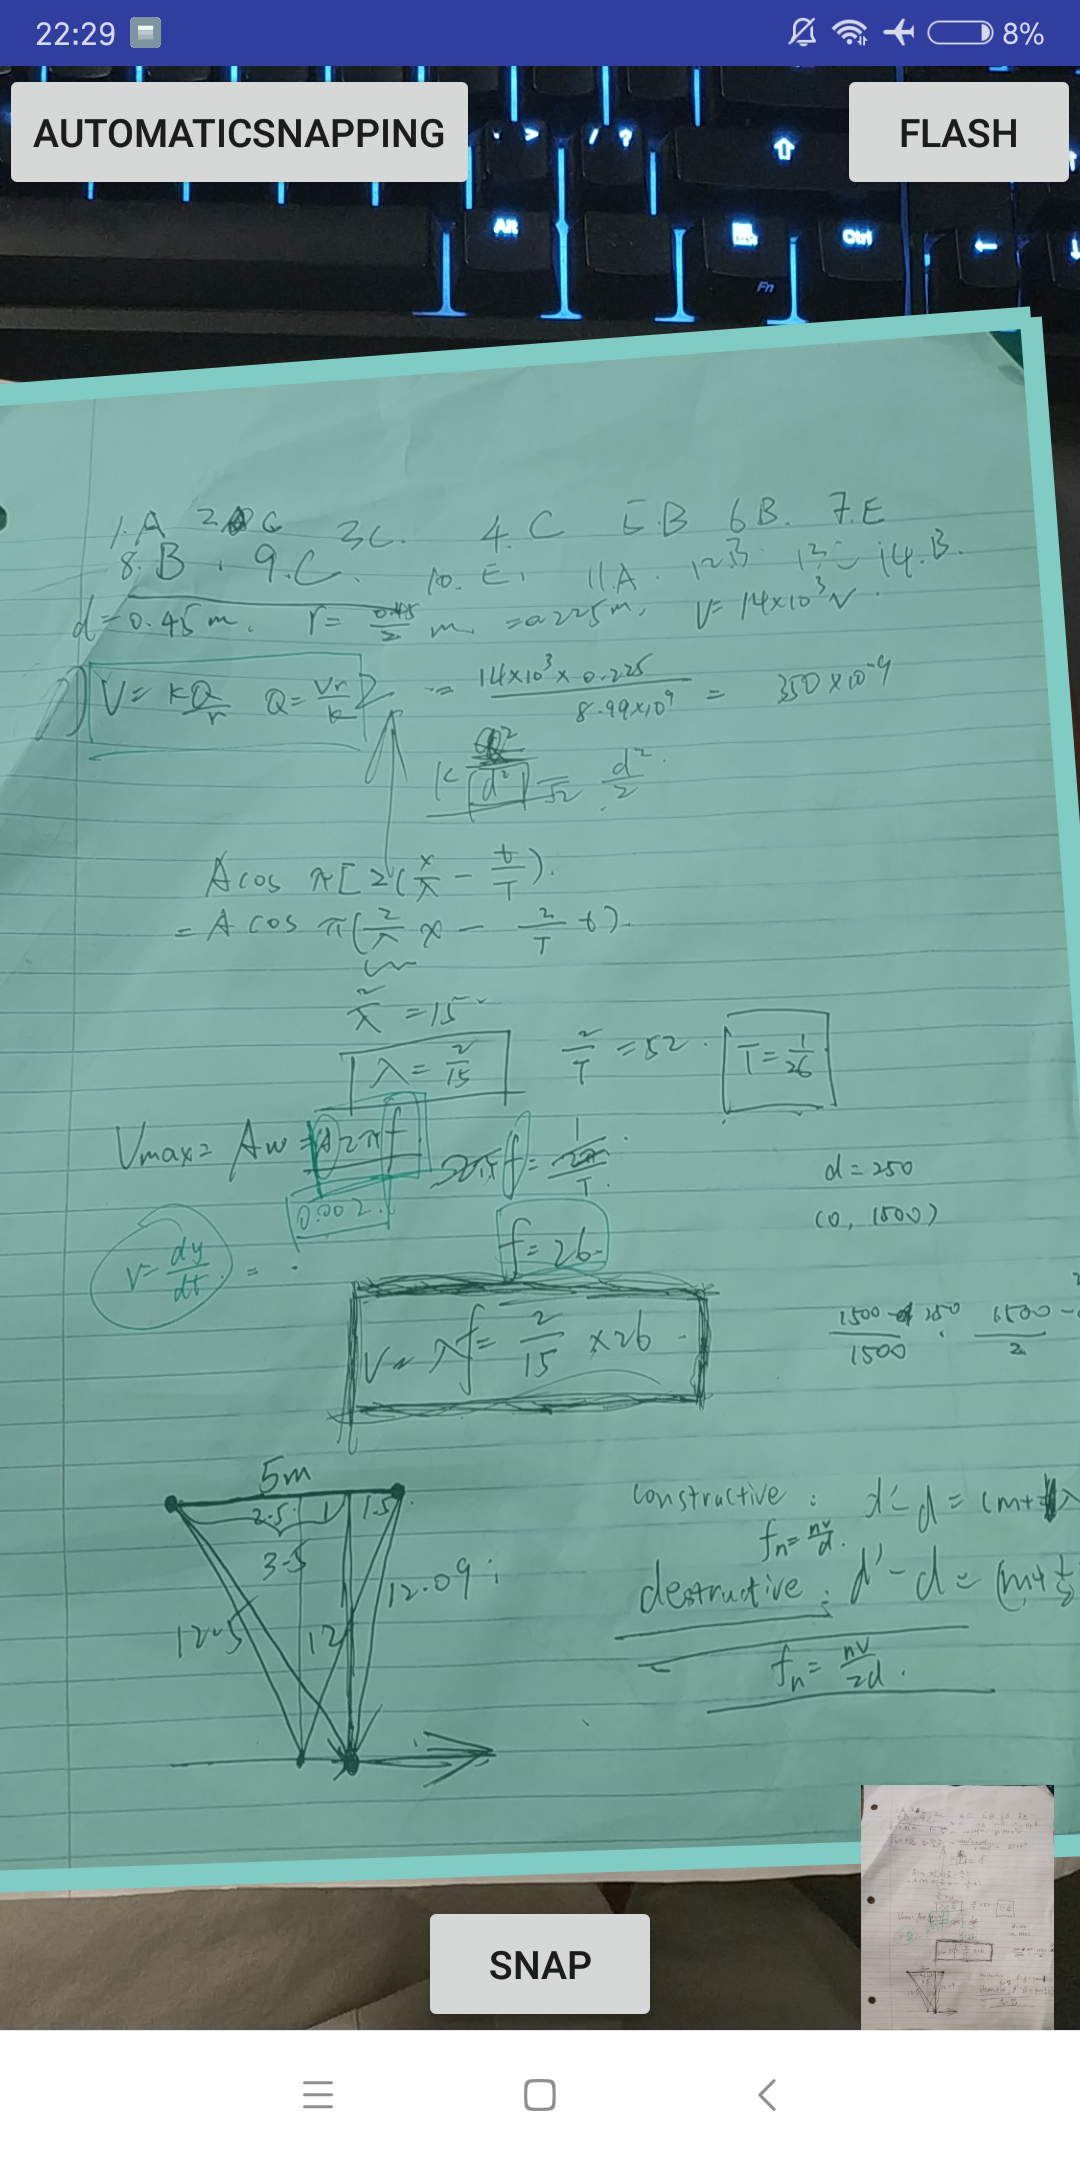 22:29 8%
AUTOMATICSNAPPING FLASH
Alt Ctrl
Fn
1.A 2. C 3C. 4.C 5.B 6B. 7.E
8.B. 9.C. 10.E. 11A. 12B 13C 14.B.
d=0.45m. r= 0.45/2 m =0.225m. V=14×10³V.
V= kQ/r Q= Vr/k = 14×10³×0.225/8.99×10⁹ = 350×10⁻⁹
k Q²/d² √2 d²/2
Acos π[2(x/λ - t/T).
= A cos π(2/λ x - 2/T t).
2/λ =15
λ= 2/15 2/T =52. T= 1/26
Vmax= Aw = A2πf 2πf= 2π/T.
0.002.
d=250
(0, 1500)
V= dy/dt =
f=26
V= λf= 2/15 ×26
1500-250/1500 1500-/2
5m
2.5 1 1.5
3.5
12.5 12 12.09
constructive: d'-d=(m+ λ
fn= nv/d.
destructive: d'-d=(m+½
fn= nv/2d.
SNAP